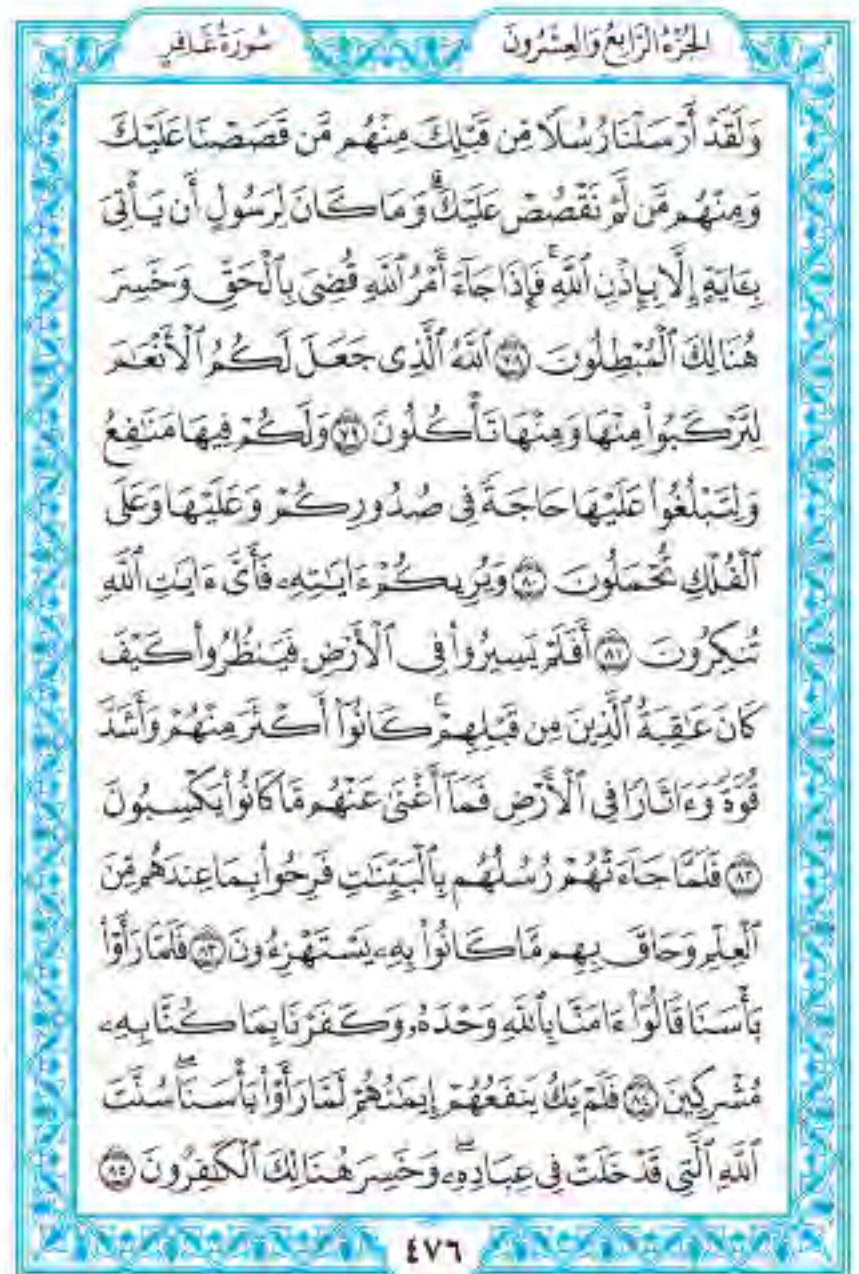 الجُزْءُ الرَّابِعُ وَالعِشْرُونَ
سُورَةُ غَافِرٍ
وَلَقَدْ أَرْسَلْنَا رُسُلًا مِّن قَبْلِكَ مِنْهُم مَّن قَصَصْنَا عَلَيْكَ
وَمِنْهُم مَّن لَّمْ نَقْصُصْ عَلَيْكَۗ وَمَا كَانَ لِرَسُولٍ أَن يَأْتِيَ
بِـَٔايَةٍ إِلَّا بِإِذْنِ ٱللَّهِۚ فَإِذَا جَآءَ أَمْرُ ٱللَّهِ قُضِيَ بِٱلْحَقِّ وَخَسِرَ
هُنَالِكَ ٱلْمُبْطِلُونَ ٧٨ ٱللَّهُ ٱلَّذِي جَعَلَ لَكُمُ ٱلْأَنْعَٰمَ
لِتَرْكَبُوا۟ مِنْهَا وَمِنْهَا تَأْكُلُونَ ٧٩ وَلَكُمْ فِيهَا مَنَٰفِعُ
وَلِتَبْلُغُوا۟ عَلَيْهَا حَاجَةً فِي صُدُورِكُمْ وَعَلَيْهَا وَعَلَى
ٱلْفُلْكِ تُحْمَلُونَ ٨٠ وَيُرِيكُمْ ءَايَٰتِهِۦ فَأَيَّ ءَايَٰتِ ٱللَّهِ
تُنكِرُونَ ٨١ أَفَلَمْ يَسِيرُوا۟ فِي ٱلْأَرْضِ فَيَنظُرُوا۟ كَيْفَ
كَانَ عَٰقِبَةُ ٱلَّذِينَ مِن قَبْلِهِمْۚ كَانُوٓا۟ أَكْثَرَ مِنْهُمْ وَأَشَدَّ
قُوَّةً وَءَاثَارًا فِي ٱلْأَرْضِ فَمَآ أَغْنَىٰ عَنْهُم مَّا كَانُوا۟ يَكْسِبُونَ
٨٢ فَلَمَّا جَآءَتْهُمْ رُسُلُهُم بِٱلْبَيِّنَٰتِ فَرِحُوا۟ بِمَا عِندَهُم مِّنَ
ٱلْعِلْمِ وَحَاقَ بِهِم مَّا كَانُوا۟ بِهِۦ يَسْتَهْزِءُونَ ٨٣ فَلَمَّا رَأَوْا۟
بَأْسَنَا قَالُوٓا۟ ءَامَنَّا بِٱللَّهِ وَحْدَهُۥ وَكَفَرْنَا بِمَا كُنَّا بِهِۦ
مُشْرِكِينَ ٨٤ فَلَمْ يَكُ يَنفَعُهُمْ إِيمَٰنُهُمْ لَمَّا رَأَوْا۟ بَأْسَنَاۖ سُنَّتَ
ٱللَّهِ ٱلَّتِي قَدْ خَلَتْ فِي عِبَادِهِۦۖ وَخَسِرَ هُنَالِكَ ٱلْكَٰفِرُونَ ٨٥
٤٧٦